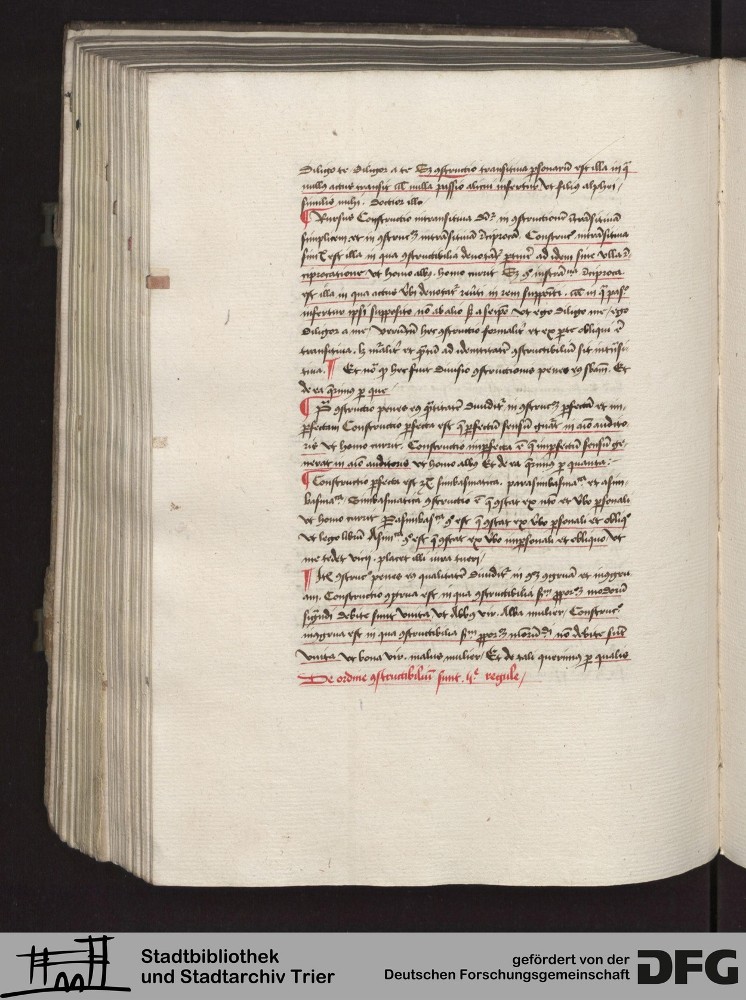 Diligo te Diligor a te Sed constructio transitiva personarum est illa in qua
nullus actus transit nec nulla passio alicui infertur ut filius alzheri
similis mihi. doctior illo
Rursus Constructio intransitiva dividitur in constructionem intransitivam
simplicem et in constructionem intransitivam reciprocam Constructio intransitiva
simplex est illa in qua constructibilia denotantur pertinere ad idem sine ulla re
ciprocatione ut homo albus homo currit Sed constructio intransitiva reciproca
est illa in qua actus verbi denotatur in rem suppositi
infertur ipsi supposito non ab alio sed a seipso ut ego diligo me / ego
diligor a me / verumtamen hec constructio formaliter et ex parte obliqui est
transitiva. licet materialiter et quantum ad identitatem constructibilium sit intransi
tiva. Et nota quod hec sunt divisio constructionis penes eius substantiam. Et
de ea querimus per que
constructio penes eius quantitatem dividitur in constructionem perfectam et im
perfectam Constructio perfecta est que perfectum sensum generat in animo audito
ris ut homo currit. Constructio imperfecta est que imperfectum sensum ge
nerat in animo auditoris ut homo albus Et de ea querimus per quanta
Constructio perfecta est simbasmatica. parasimbasmatica et asim
basmatica. Simbasmatica constructio est que constat ex nominativo et verbo personali
ut homo currit Parasimbasmatica constructio est que constat ex verbo personali et obliquo
ut lego librum Asimbasmatica constructio est que constat ex verbo impersonali et obliquo ut
me tedet vicii. placet illi
Item constructio penes eius qualitatem dividitur in congruam et incongru
am. Constructio congrua est in qua constructibilia secundum proportionem modorum
significandi debite sunt unita ut Albus vir. Alba mulier / Constructio
incongrua est in qua constructibilia secundum proportionem modorum significandi non debite sunt
unita ut bona vir. malus mulier / Et de tali querimus per qualis
De ordine constructibilium sunt regule /
Stadtbibliothek
und Stadtarchiv Trier
gefördert von der
Deutschen Forschungsgemeinschaft
DFG